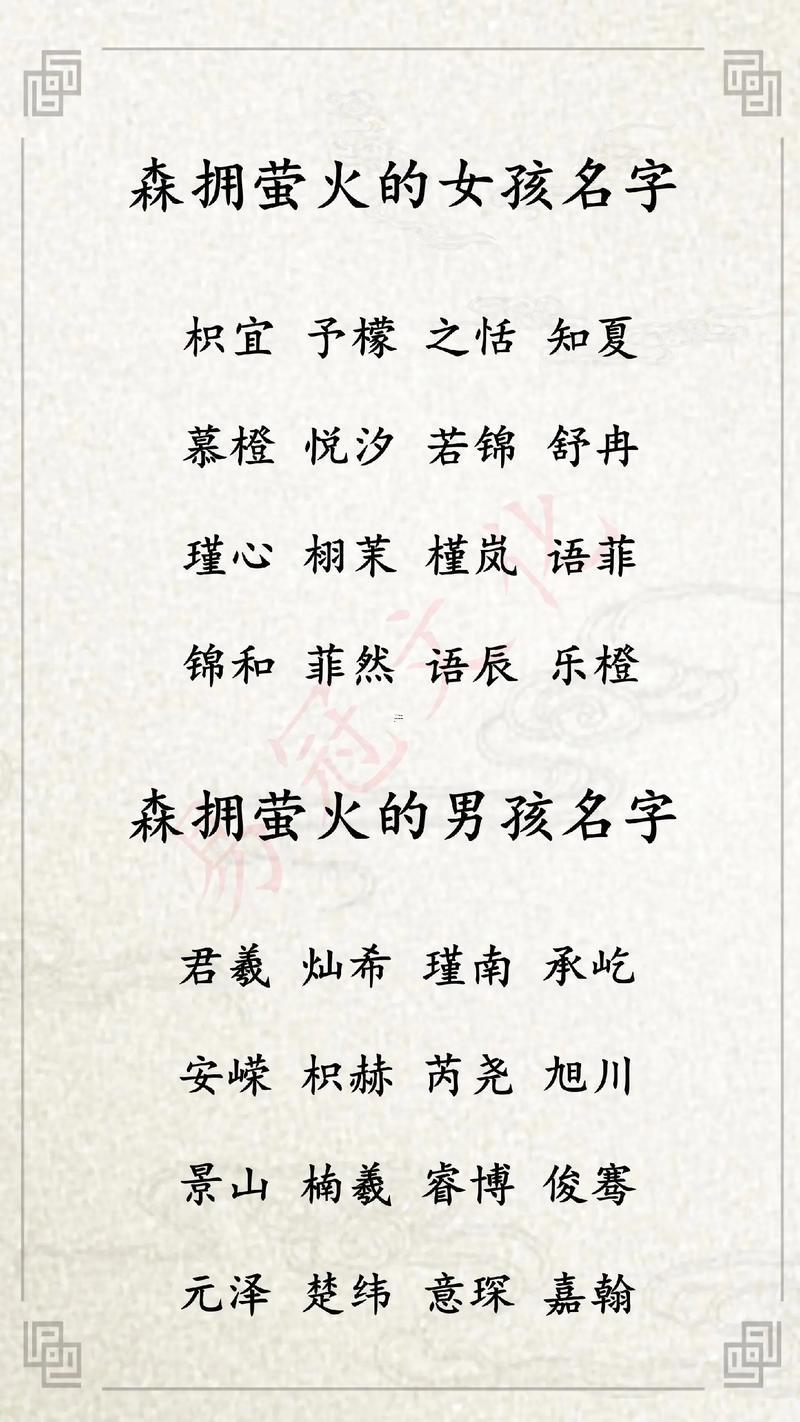 森拥萤火的女孩名字
枳宜 予檬 之恬 知夏
慕橙 悦汐 若锦 舒冉
瑾心 栩茉 槿岚 语菲
锦和 菲然 语辰 乐橙
森拥萤火的男孩名字
君羲 灿希 瑾南 承屹
安嵘 枳赫 芮尧 旭川
景山 楠羲 睿博 俊骞
元泽 楚纬 意琛 嘉翰
易冠文化